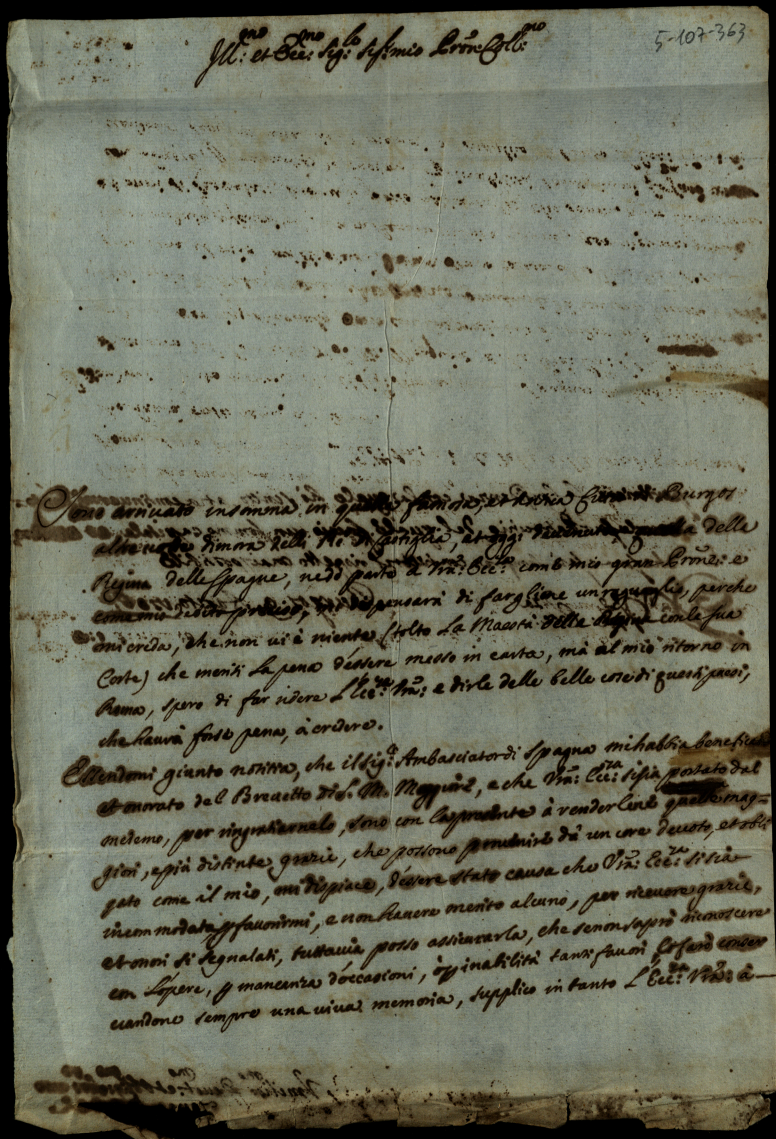 5-107-363
Ill.mo et Ecc.mo Sig.re Sig.r mio Pron Coll.mo
Sono arrivato in somma in questa famosa, et antica Città di Burgos
altre volte dimora delli Rè di Castiglia, et oggi della delle
Regine delle Spagne, ne dò parte à Vra: Ecc.za com'è mio gran Prone: e
come mio di fargliene un ragguaglio, perche
mi creda, che non vi è niente (tolto La Maestà della Regina con la sua
Corte) che meriti La pena d'essere messo in carta, mà al mio ritorno in
Roma, spero di far ridere L'Ecc.za Vra: e dirle delle belle cose di questi paesi,
che haurà forse pena, à credere.
Essendomi giunto notitia, che il sig.r Ambasciator di Spagna mi habbia beneficato
et onorato del Brevetto di S. M. Maggiore, e che Vra: Ecc.za si sia portato dal
medemo, per ringratiarnelo, sono con la presente à renderlene quelle mag=
giori, e più distinte grazie, che possono provenire da un core devoto, et obli
gato come il mio, mi dispiace, d'essere stato causa che Vra: Ecc.za si sia
incommodata p favorirmi, e non havere merito alcuno, per ricevere grazie,
et onori sì segnalati, tuttavia posso assicurarla, che se non saprò riconoscere
con l'opere, p mancanza d'occasioni, ò p inabilità tanti favori, lo farò conser
vandone sempre una viva memoria, supplico in tanto L'Ecc.za Vra: à